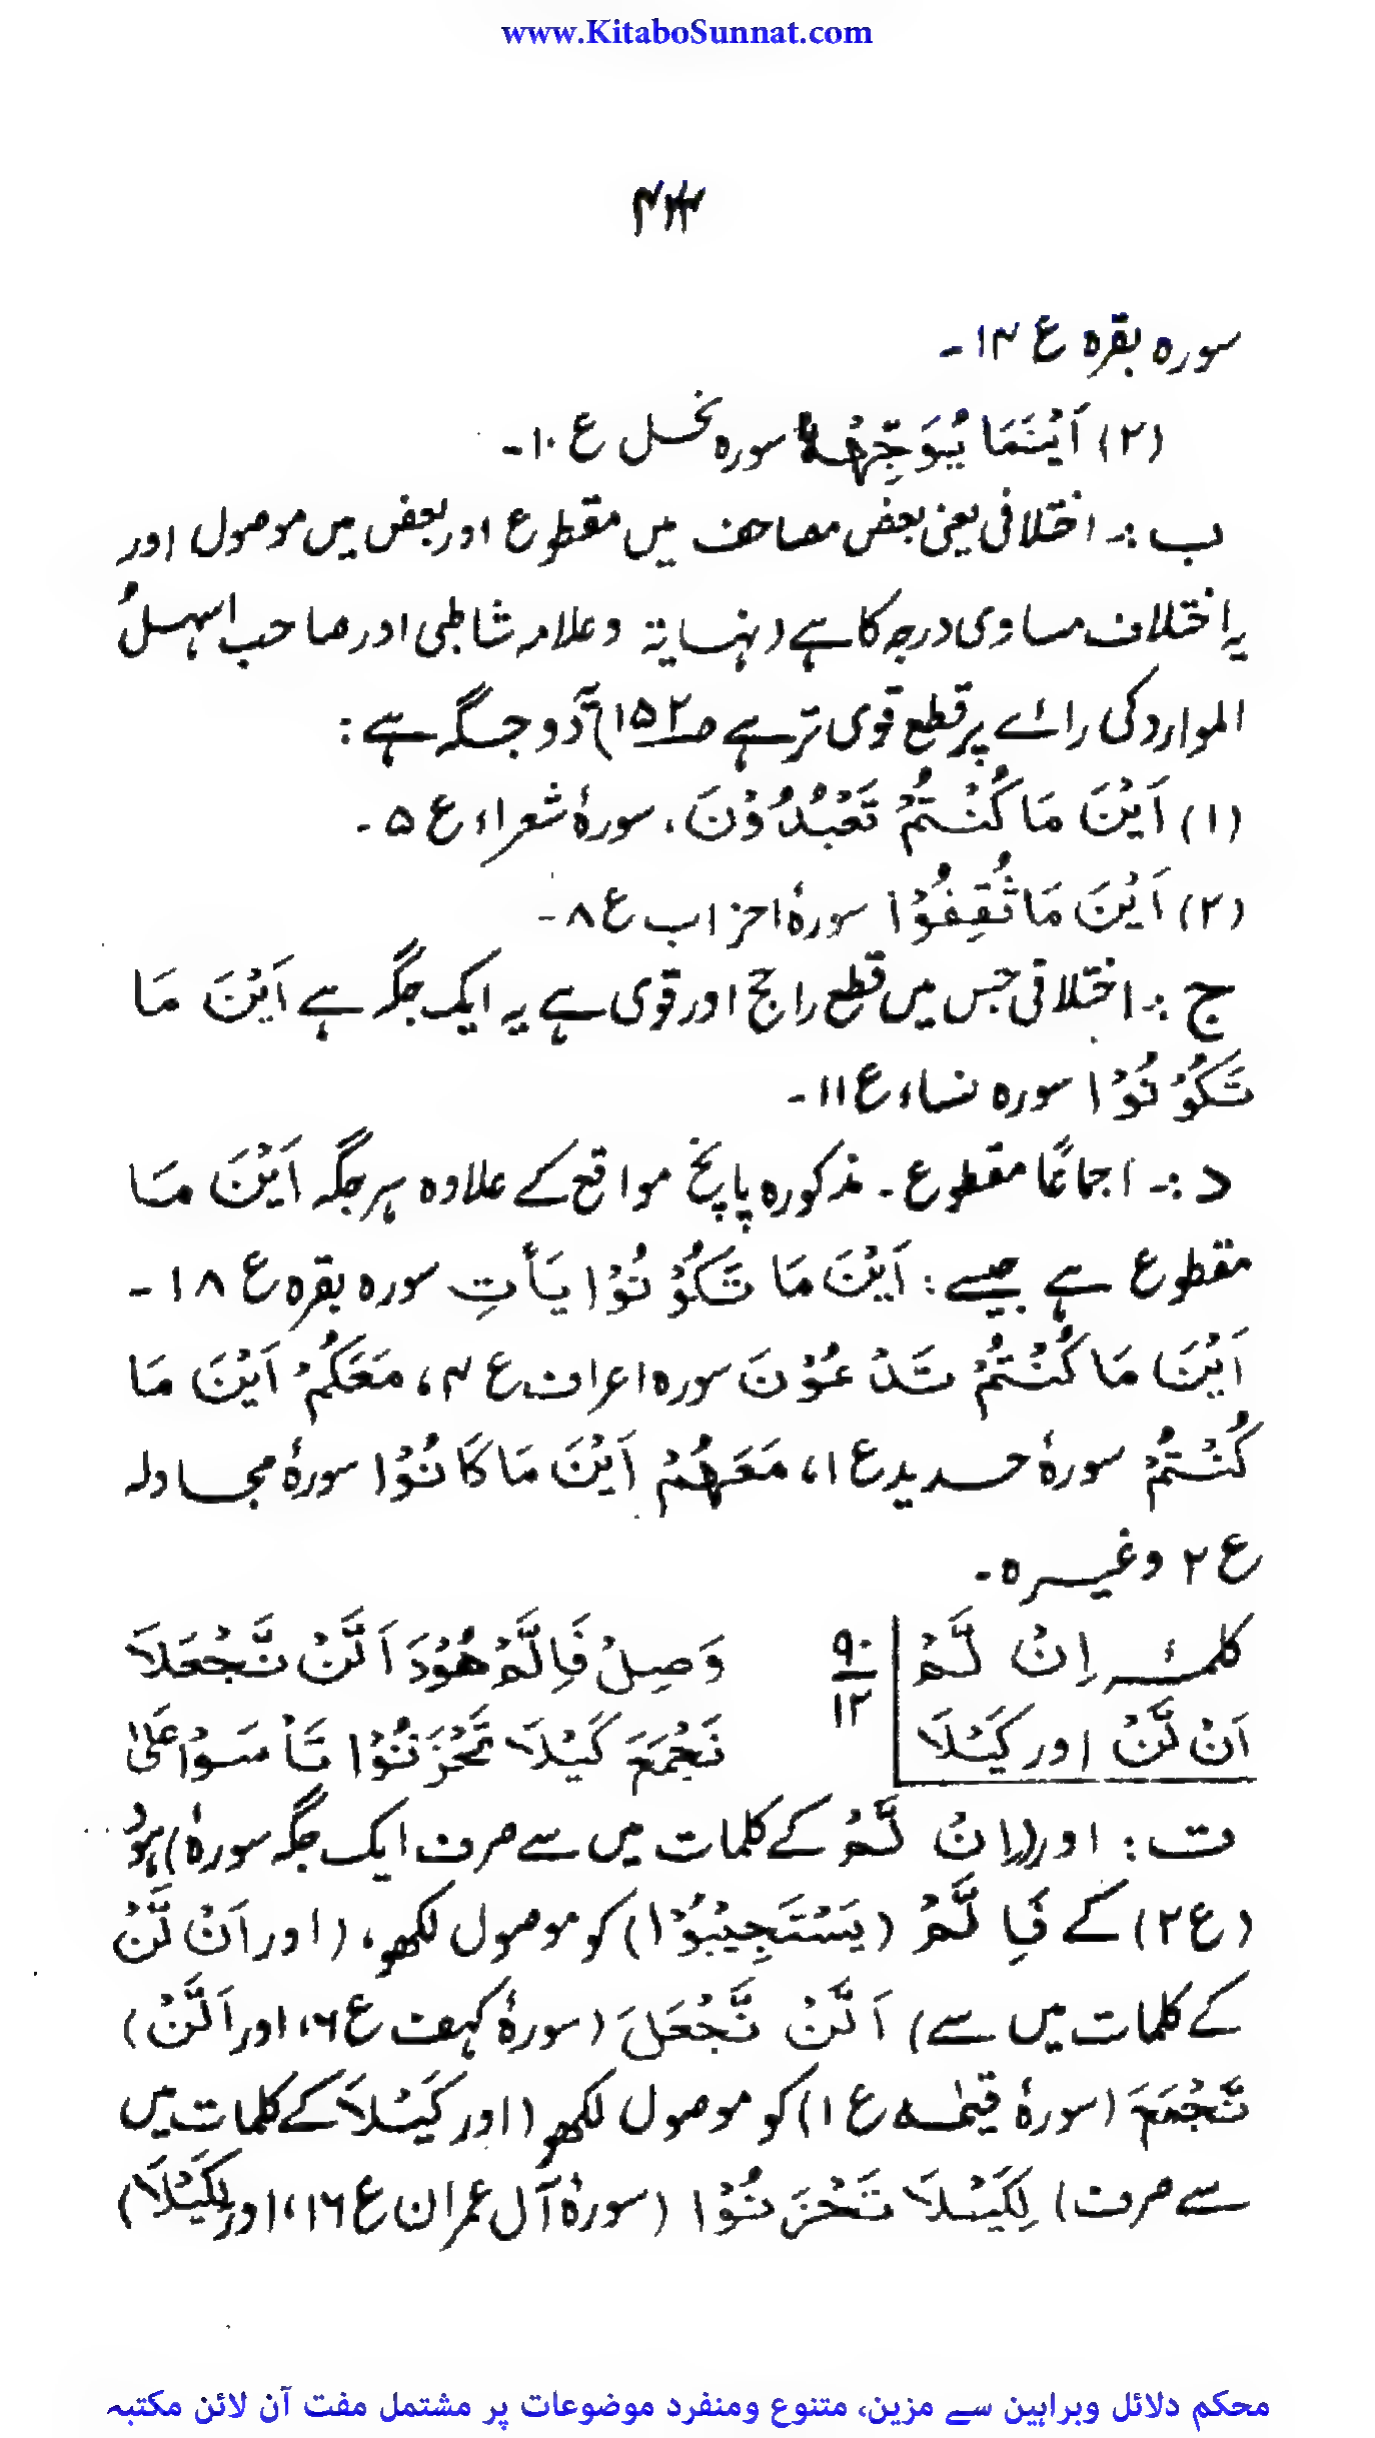 www.KitaboSunnat.com
سورہ بقرہ ع ۱۴۔
(۲) اَيْنَمَا يُوَجِّهْهُ سورہ نحل ع ۱۰۔
ب :۔ اختلافی یعنی بعض مصاحف میں مقطوع اور بعض میں موصول اور
یہ اختلاف مساوی درجہ کا ہے (نہایۃ و علامہ شاطبی اور صاحب اسہل
الموارد کی رائے پر قطع قوی تر ہے صـ۱۵۲) آ دو جگہ ہے :
(۱) اَيْنَ مَا كُنْتُمْ تَعْبُدُوْنَ، سورۂ شعراء ع ۵۔
(۲) اَيْنَ مَا ثُقِفُوْا سورۂ احزاب ع ۸۔
ج :۔ اختلافی جس میں قطع راجح اور قوی ہے یہ ایک جگہ ہے اَيْنَ مَا
تَكُوْنُوْا سورہ نساء ع ۱۱۔
د :۔ اجماعًا مقطوع۔ مذکورہ پانچ مواقع کے علاوہ ہر جگہ اَيْنَ مَا
مقطوع ہے جیسے : اَيْنَ مَا تَكُوْنُوْا يَأْتِ سورہ بقرہ ع ۱۸۔
اَيْنَ مَا كُنْتُمْ تَدْعُوْنَ سورہ اعراف ع ۴، مَعَكُمْ اَيْنَ مَا
كُنْتُمْ سورۂ حدید ع ۱، مَعَهُمْ اَيْنَ مَا كَانُوْا سورۂ مجادلہ
ع ۲ وغیرہ۔
کلمۂ اِنْ لَّمْ ۹۰/۱۲ وَصِلْ فَاِلَّمْ هُوْدَ اَلَّنْ نَّجْعَلَا
اَنْ لَّنْ اور كَيْلَا نَجْمَعَ كَيْلَا تَحْزَنُوْا تَأْسَوْا عَلٰى
ت : اور (اِنْ لَّمْ کے کلمات میں سے صرف ایک جگہ سورۂ) ہُوْد
(ع ۲) کے فَاِلَّمْ (يَسْتَجِيْبُوْا) کو موصول لکھو، (اور اَنْ لَّنْ
کے کلمات میں سے) اَلَّنْ نَّجْعَلَ (سورۂ کہف ع ۶، اور اَلَّنْ)
نَّجْمَعَ (سورۂ قیٰمہ ع ۱) کو موصول لکھو (اور كَيْلَا کے کلمات میں
سے صرف) لِكَيْلَا تَحْزَنُوْا (سورۂ آل عمران ع ۱۶، اور لِكَيْلَا)
محکم دلائل وبراہین سے مزین، متنوع ومنفرد موضوعات پر مشتمل مفت آن لائن مکتبہ